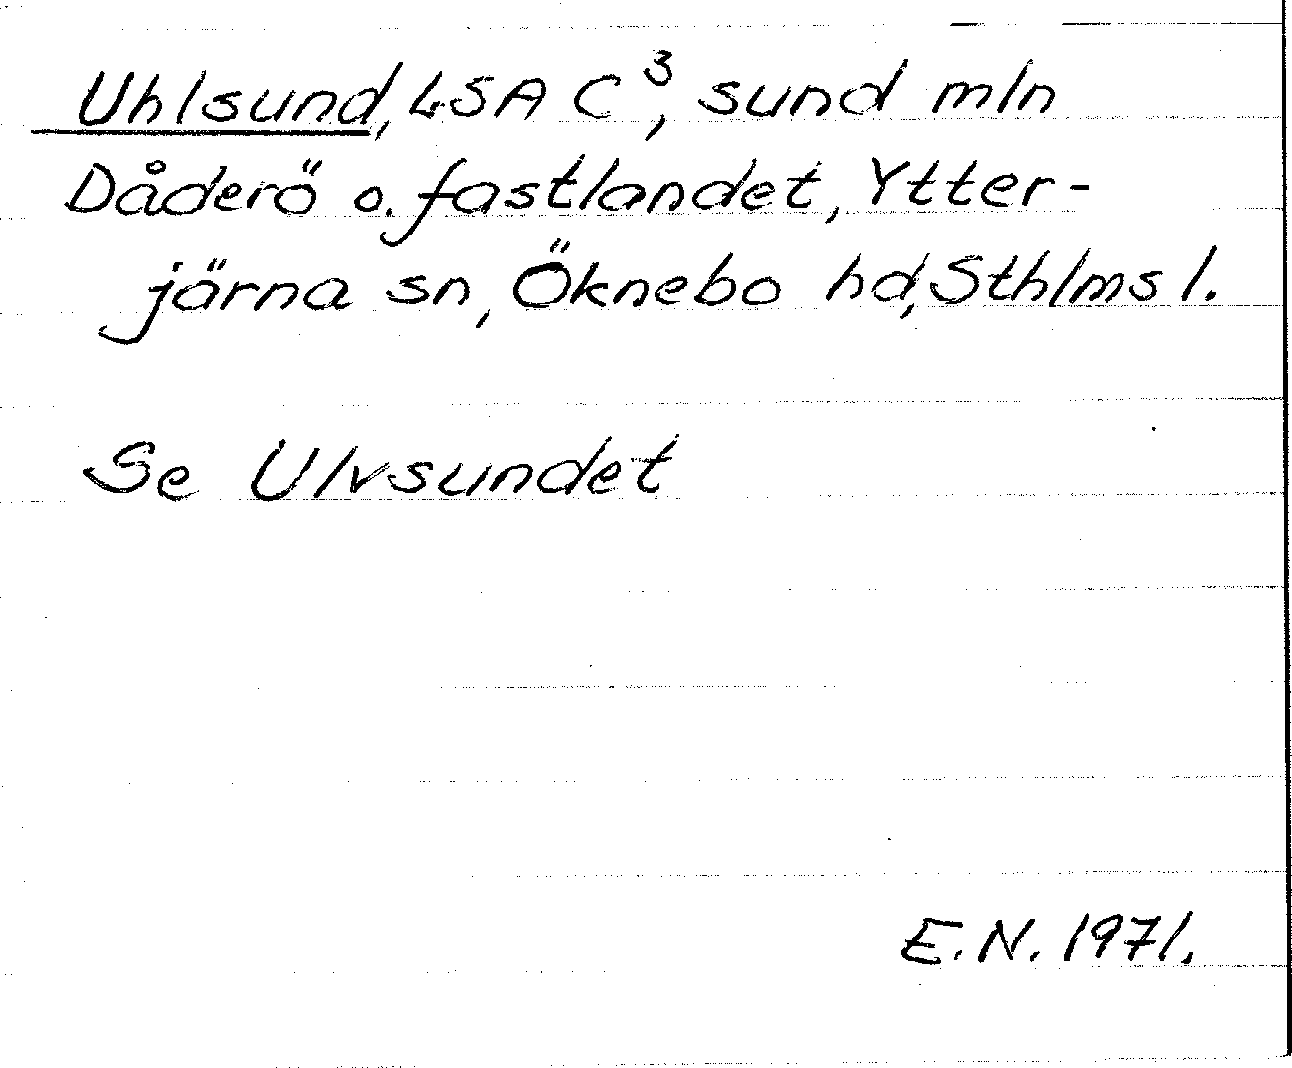 Uhlsund, LSA C³, sund mln
Dåderö o. fastlandet, Ytter-
järna sn, Öknebo hd, Sthlms l.
Se Ulvsundet
E.N. 1971.